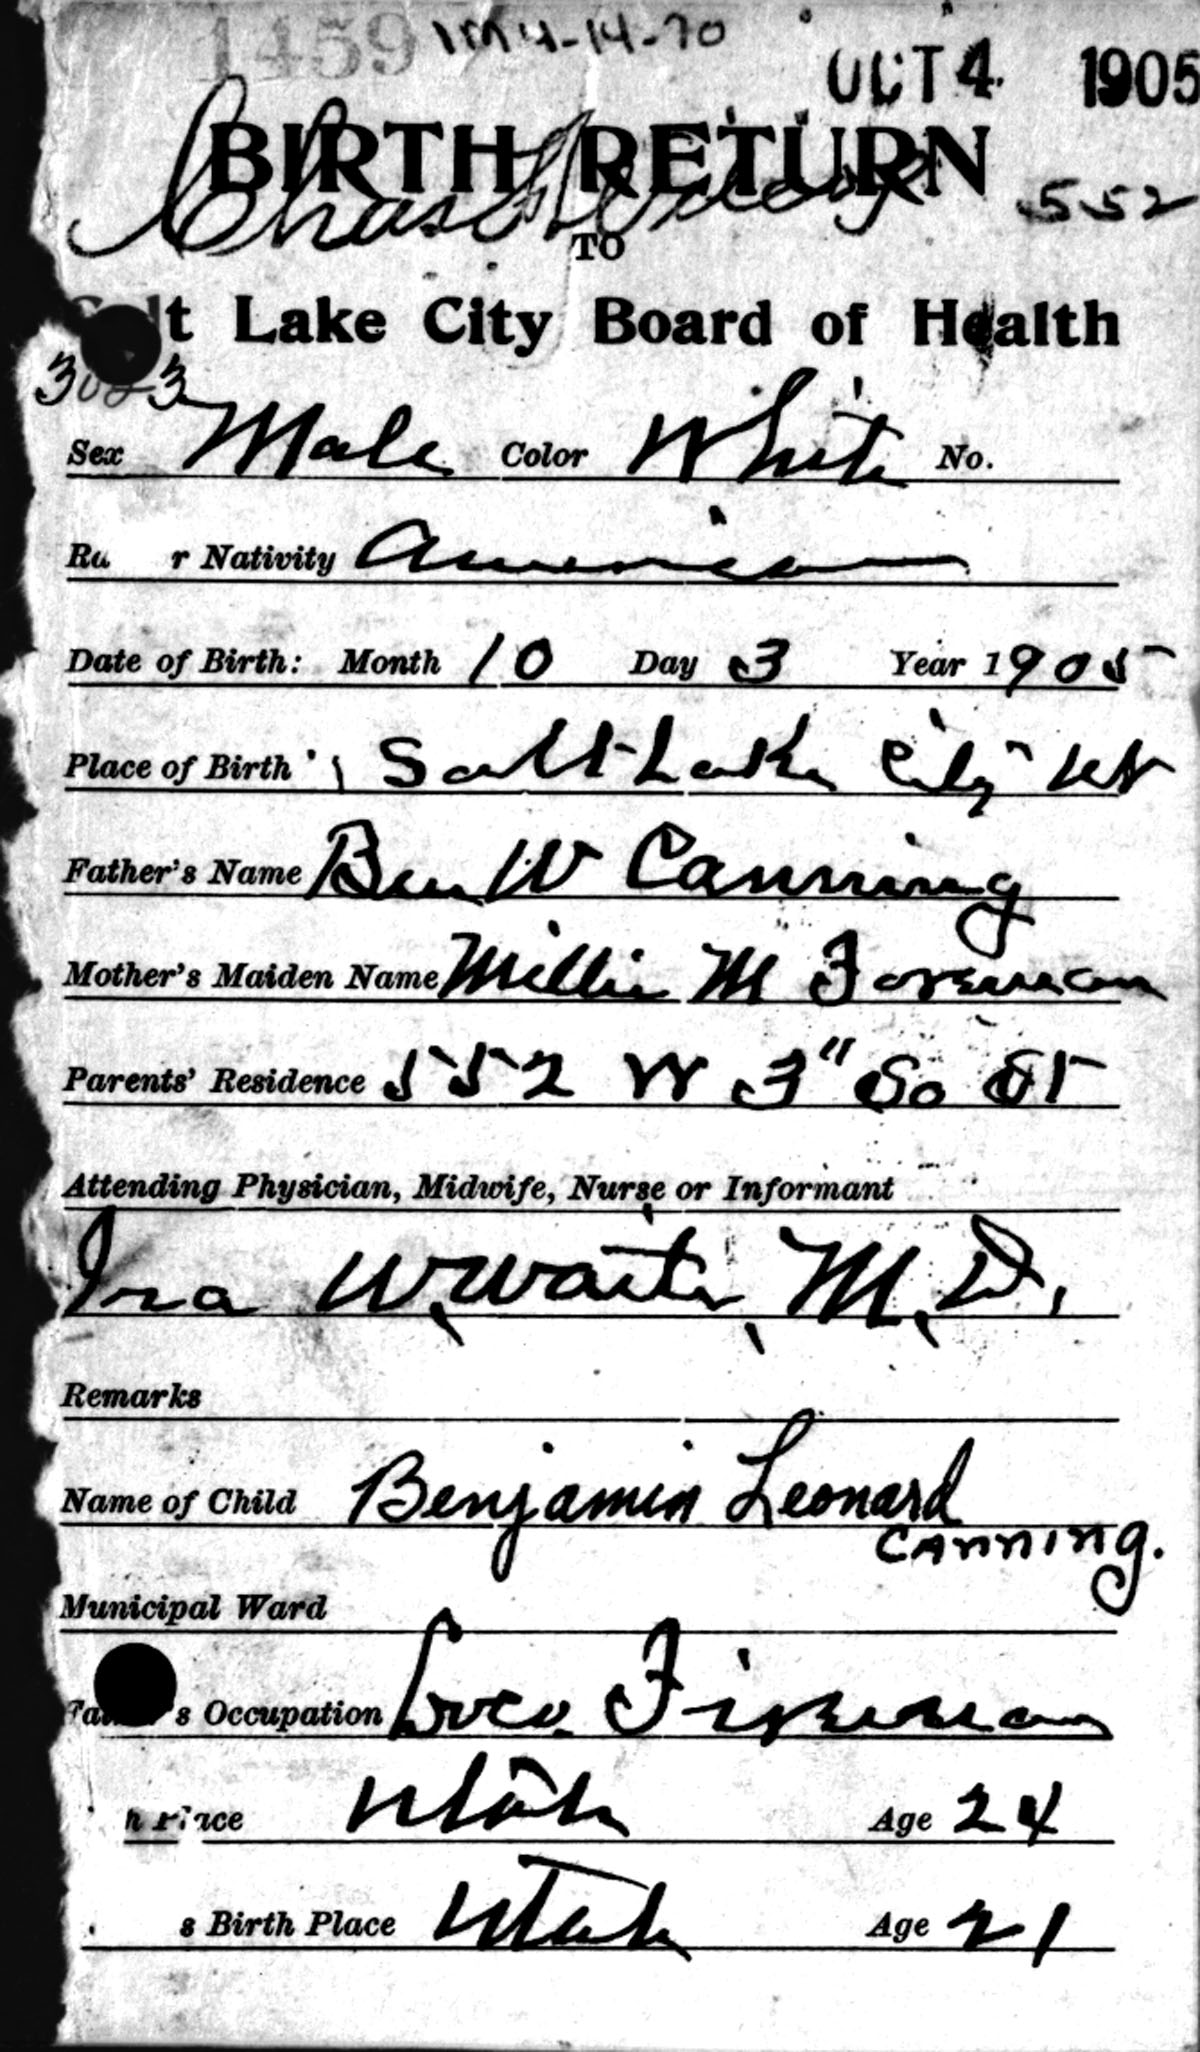 1459 1M 4-14-70
OCT 4 1905
BIRTH RETURN
552
TO
Salt Lake City Board of Health
Sex Male Color White No.
r Nativity American
Date of Birth: Month 10 Day 3 Year 1905
Place of Birth Salt Lake City Ut
Father's Name Ben W Canning
Mother's Maiden Name Millie M Foreman
Parents' Residence 552 W 3" So St
Attending Physician, Midwife, Nurse or Informant
Ira W. Waite, M.D.,
Remarks
Name of Child Benjamin Leonard
CANNING.
Municipal Ward
Father's Occupation Loco. Fireman
h Place Utah Age 24
s Birth Place Utah Age 21